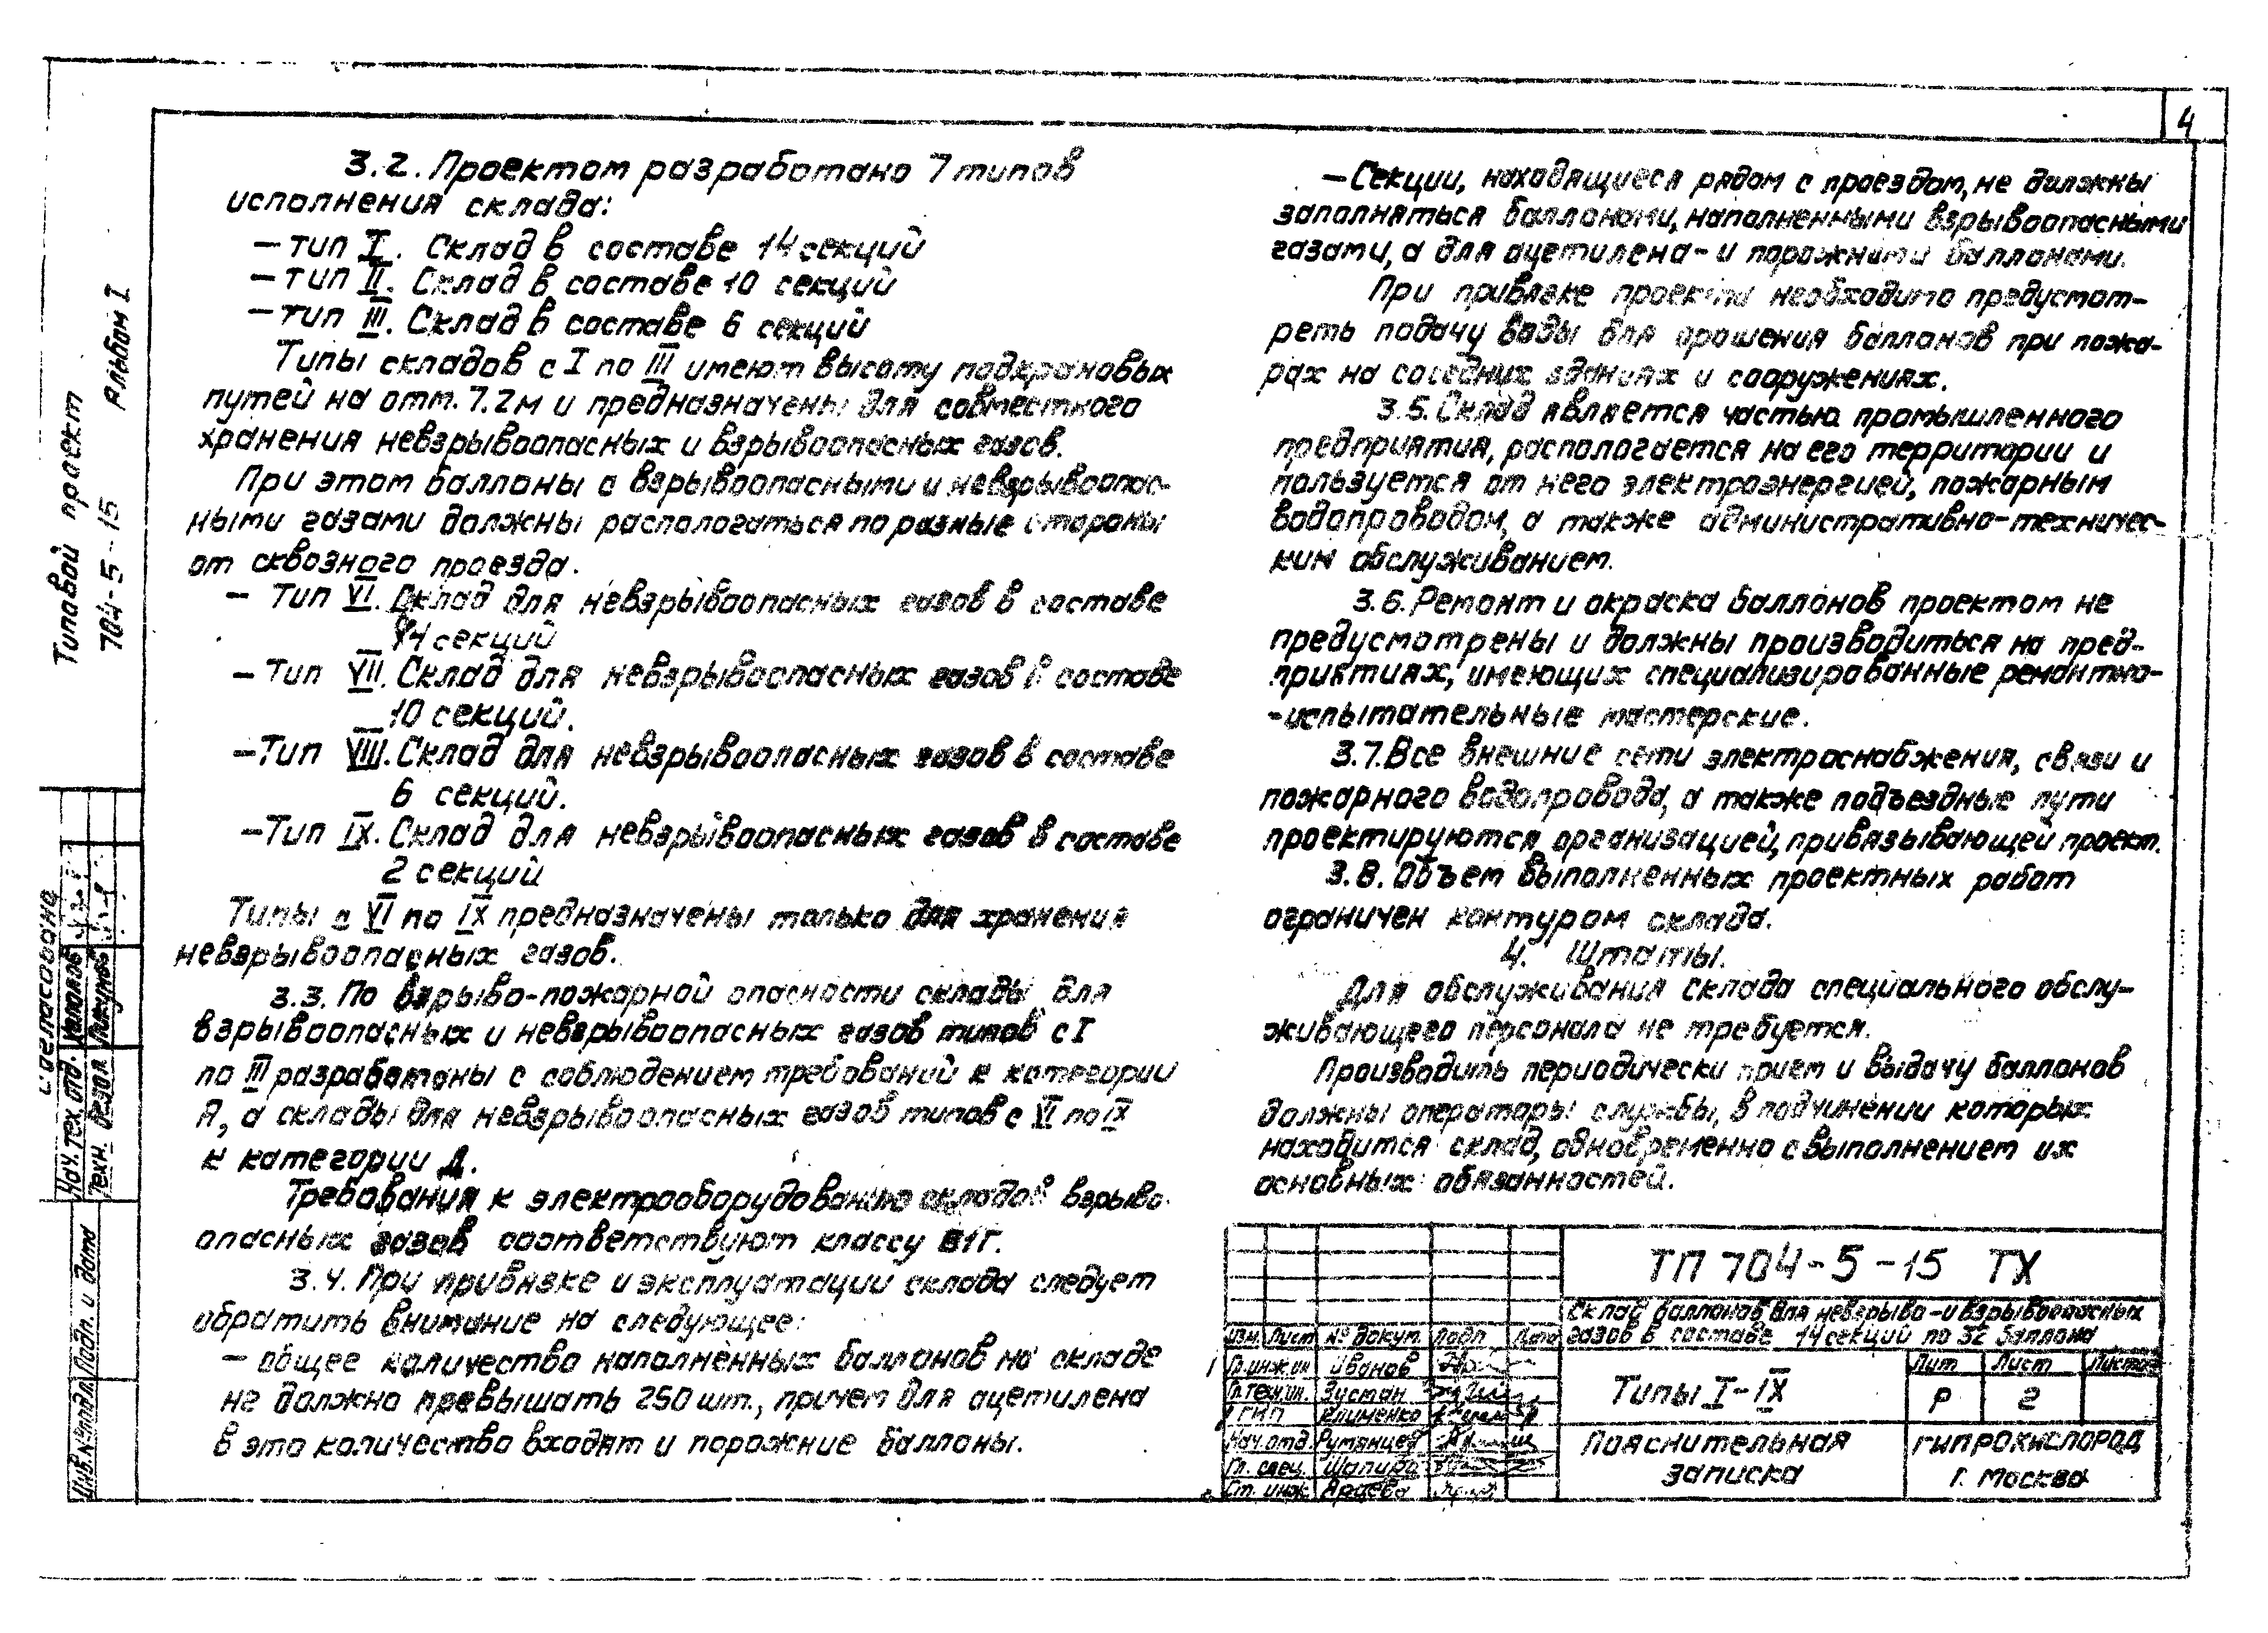 4
3.2. Проектом разработано 7 типов
исполнения склада:
– тип I. Склад в составе 14 секций
– тип II. Склад в составе 10 секций
– тип III. Склад в составе 6 секций
Типы складов с I по III имеют высоту подкрановых
путей на отм. 7.2м и предназначены для совместного
хранения невзрывоопасных и взрывоопасных газов.
При этом баллоны с взрывоопасными и невзрывоопас-
ными газами должны распологаться по разные стороны
от сквозного проезда.
– Тип VI. Склад для невзрывоопасных газов в составе
14 секций
– Тип VII. Склад для невзрывоопасных газов в составе
10 секций.
– Тип VIII. Склад для невзрывоопасных газов в составе
6 секций.
– Тип IX. Склад для невзрывоопасных газов в составе
2 секций
Типы с VI по IX предназначены только для хранения
невзрывоопасных газов.
3.3. По взрыво-пожарной опасности склады для
взрывоопасных и невзрывоопасных газов типов с I
по III разработаны с соблюдением требований к категории
А, а склады для невзрывоопасных газов типов с VI по IX
к категории Д.
Требования к электрооборудованию складов взрыво-
опасных газов соответствуют классу В1г.
3.4. При привязке и эксплуатации склада следует
обратить внимание на следующее:
– общее количество наполненных баллонов на складе
не должно превышать 250 шт., причем для ацетилена
в это количество входят и порожние баллоны.
– Секции, находящиеся рядом с проездом, не должны
заполняться баллонами, наполненными взрывоопасными
газами, а для ацетилена – и порожними баллонами.
При привязке проекта необходимо предусмот-
реть подачу воды для орошения баллонов при пожа-
рах на соседних зданиях и сооружениях.
3.5. Склад является частью промышленного
предприятия, распологается на его территории и
пользуется от него электроэнергией, пожарным
водопроводом, а также административно-техничес-
ким обслуживанием.
3.6. Ремонт и окраска баллонов проектом не
предусмотрены и должны производиться на пред-
приятиях, имеющих специализированные ремонтно-
-испытательные мастерские.
3.7. Все внешние сети электроснабжения, связи и
пожарного водопровода, а также подъездные пути
проектируются организацией, привязывающей проект.
3.8. Объем выполненных проектных работ
ограничен контуром склада.
4. Штаты.
Для обслуживания склада специального обслу-
живающего персонала не требуется.
Производить периодически прием и выдачу баллонов
должны операторы службы, в подчинении которых
находится склад, одновременно с выполнением их
основных обязанностей.
Типовой проект
704-5-15 Альбом I
Согласовано
Нач. тех. отд.
Техн. отдел
Инв.№подл. Подп. и дата
ТП 704-5-15 ТХ
Склад баллонов для невзрыво-и взрывоопасных
газов в составе 14 секций по 32 баллона
Изм. Лист № докум. Подп. Дата
Гл.инж.ин Иванов
Гл.техн.ин. Зустан
ГИП Клименко
Нач.отд. Румянцев
Гл. спец. Шапиро
Ст. инж. Араева
Типы I-IX
Лит Лист Листов
Р 2
Пояснительная
записка
ГИПРОКИСЛОРОД
г. Москва